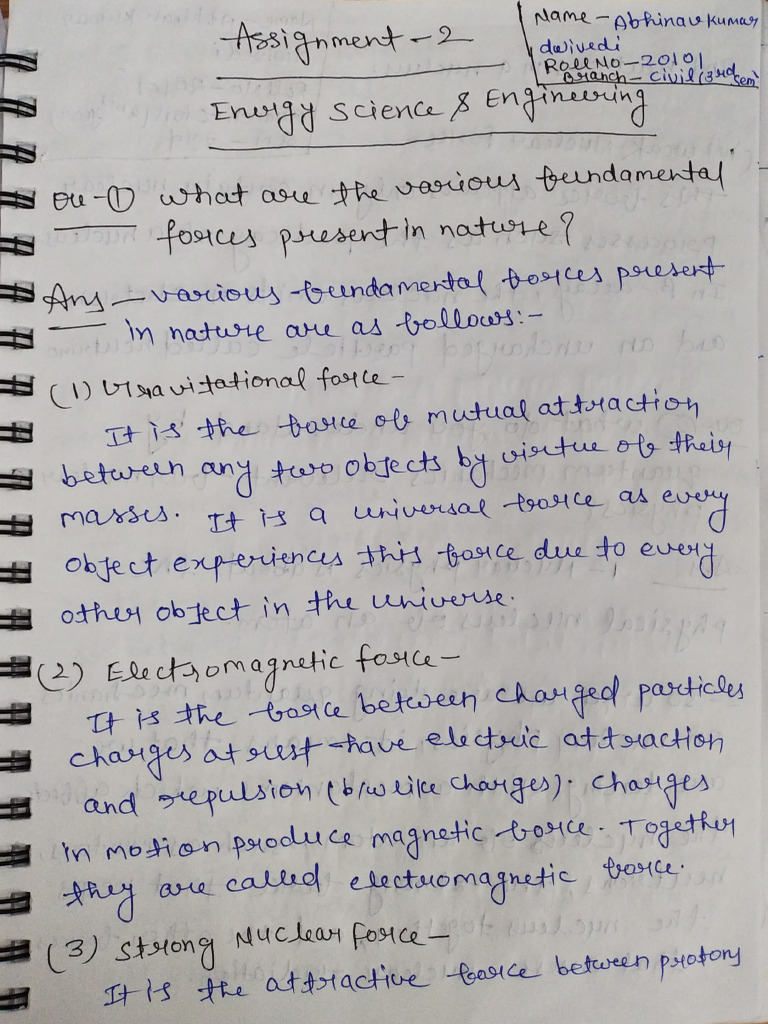 Assignment - 2
Name - Abhinav Kumar
dwivedi
Roll No - 20101
Branch - Civil (3rd sem
Energy Science & Engineering
Qu-① what are the various fundamental
forces present in nature?
Ans - various fundamental forces present
in nature are as follows:-
(1) Gravitational force -
It is the force of mutual attraction
between any two objects by virtue of their
masses. It is a universal force as every
object experiences this force due to every
other object in the universe.
(2) Electromagnetic force -
It is the force between charged particles
charges at rest have electric attraction
and repulsion (b/w like charges). charges
in motion produce magnetic force. Together
they are called electromagnetic force.
(3) Strong Nuclear force -
It is the attractive force between protons